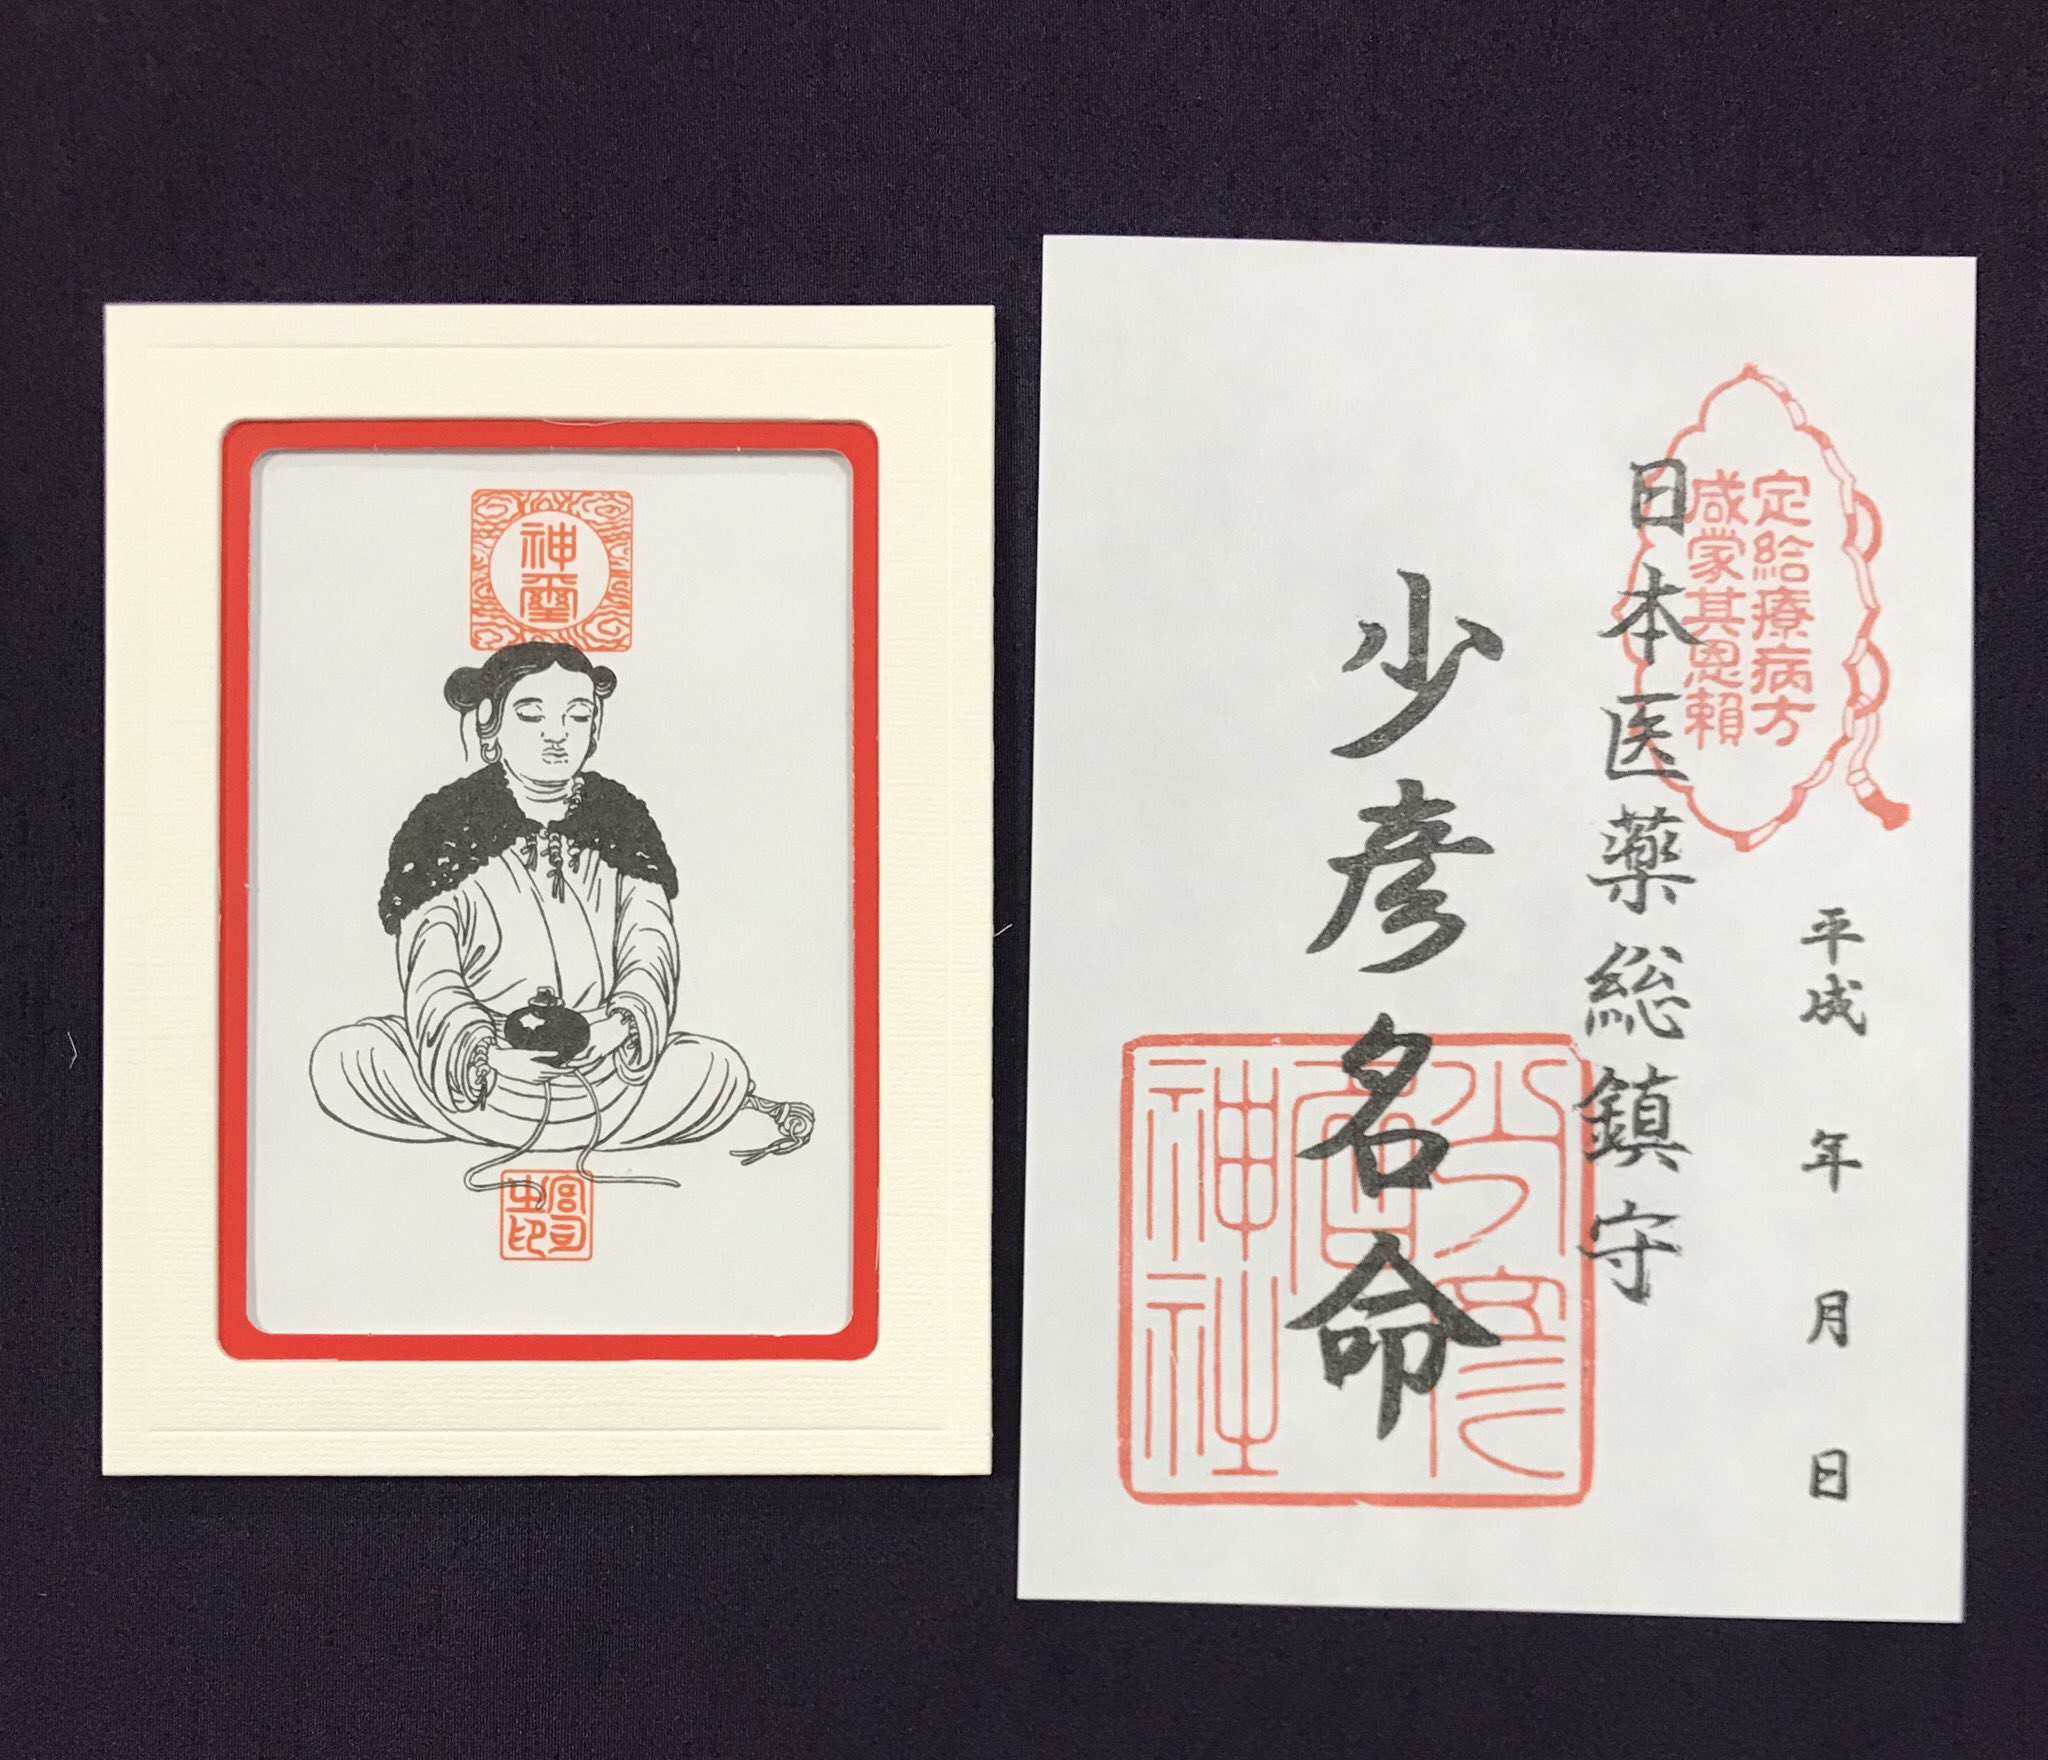 神璽
宮司
之印
定給療病方
咸蒙其恩頼
平成 年 月 日
日本医薬総鎮守
少彦名命
少彦
名
神社